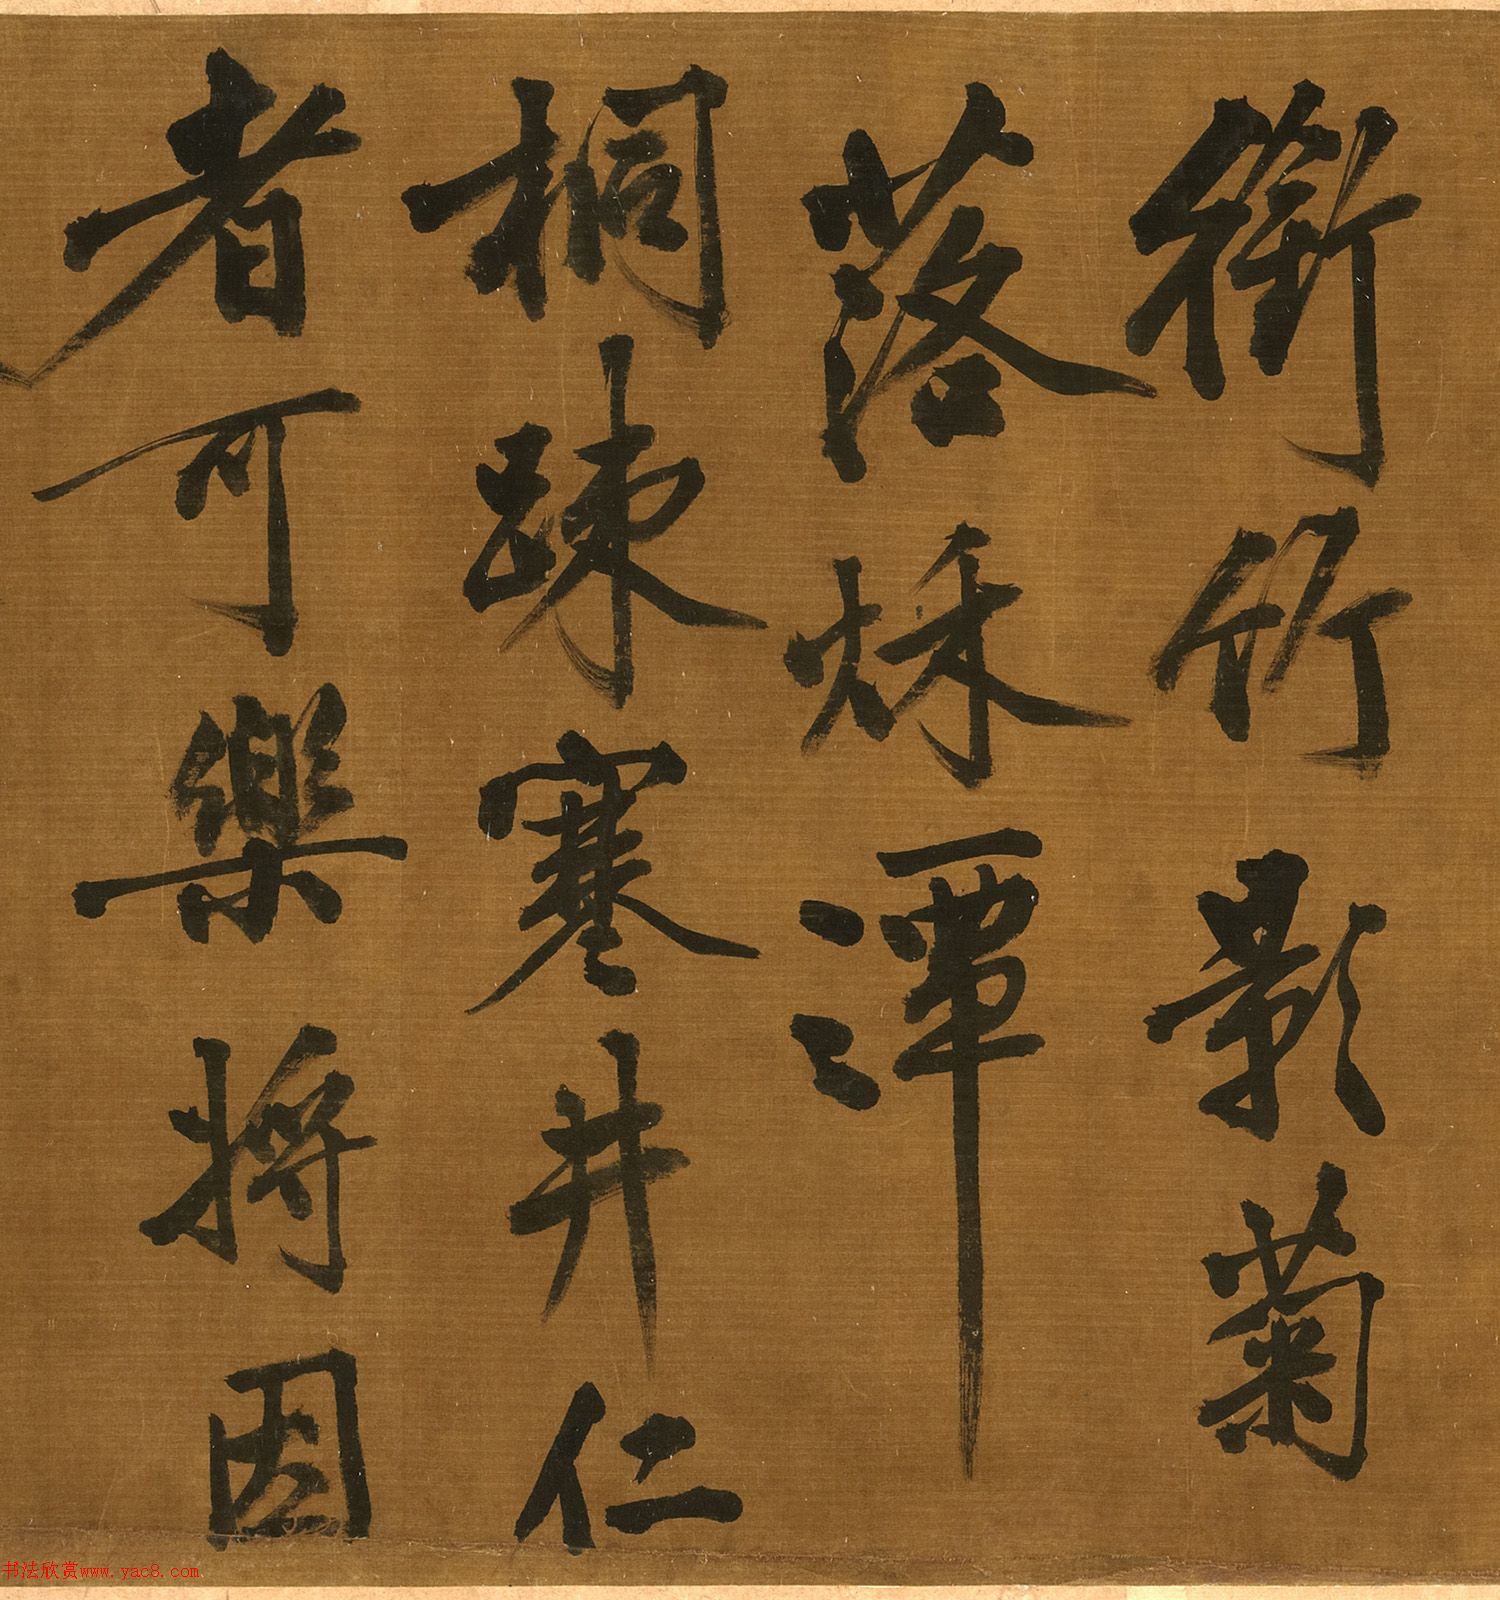 銜竹影菊
落秌潭
桐踈寒井仁
者可樂將因
书法欣赏www.yac8.com